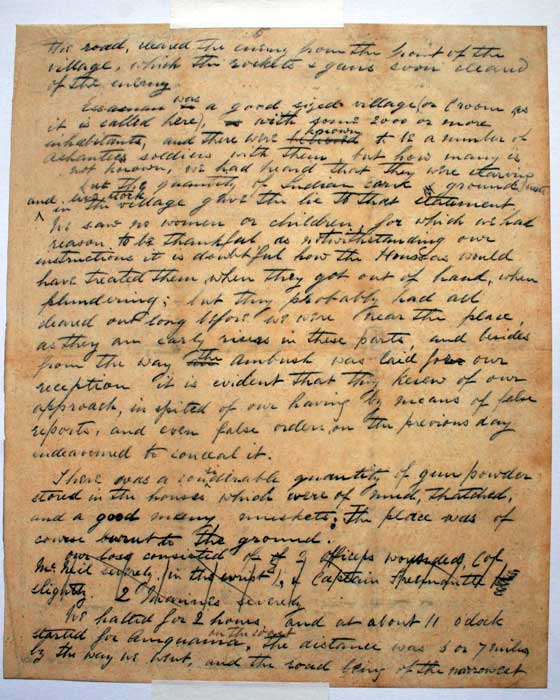 the road, cleared the enemy from the front of the
village, which the rockets & guns soon cleared
of the enemy
Essaman was a good sized village (or Croom as
it is called here), with some 2000 or more
inhabitants, and there were believed known to be a number of
Ashantees soldiers with them, but how many is
not known, we had heard that they were starving
but the quantity of Indian corn ground
and live stock in the village gave the lie to that statement
We saw no women or children, for which we had
reason to be thankful as notwithstanding our
instructions it is doubtful how the Houssas would
have treated them when they got out of hand, when
plundering; but they probably had all
cleared out long before we were near the place,
as they are early risers in these parts, and besides
from the way the ambush was laid for our
reception it is evident that they knew of our
approach, in spited of our having by means of false
reports, and even false orders, on the previous day
endeavoured to conceal it.
There was a considerable quantity of gun powder
stored in the houses which were of mud, thatched,
and a good many muskets. The place was of
course burnt to the ground.
our loss consisted of 2 officers wounded, Col
McNeil severely in the wrist, & Captain
slightly. 2 Marines severely
We halted for 2 hours, and at about 11 oclock
started for Amquana, on the coast the distance was 5 or 7 miles
by the way we went, and the road being of the narrowest